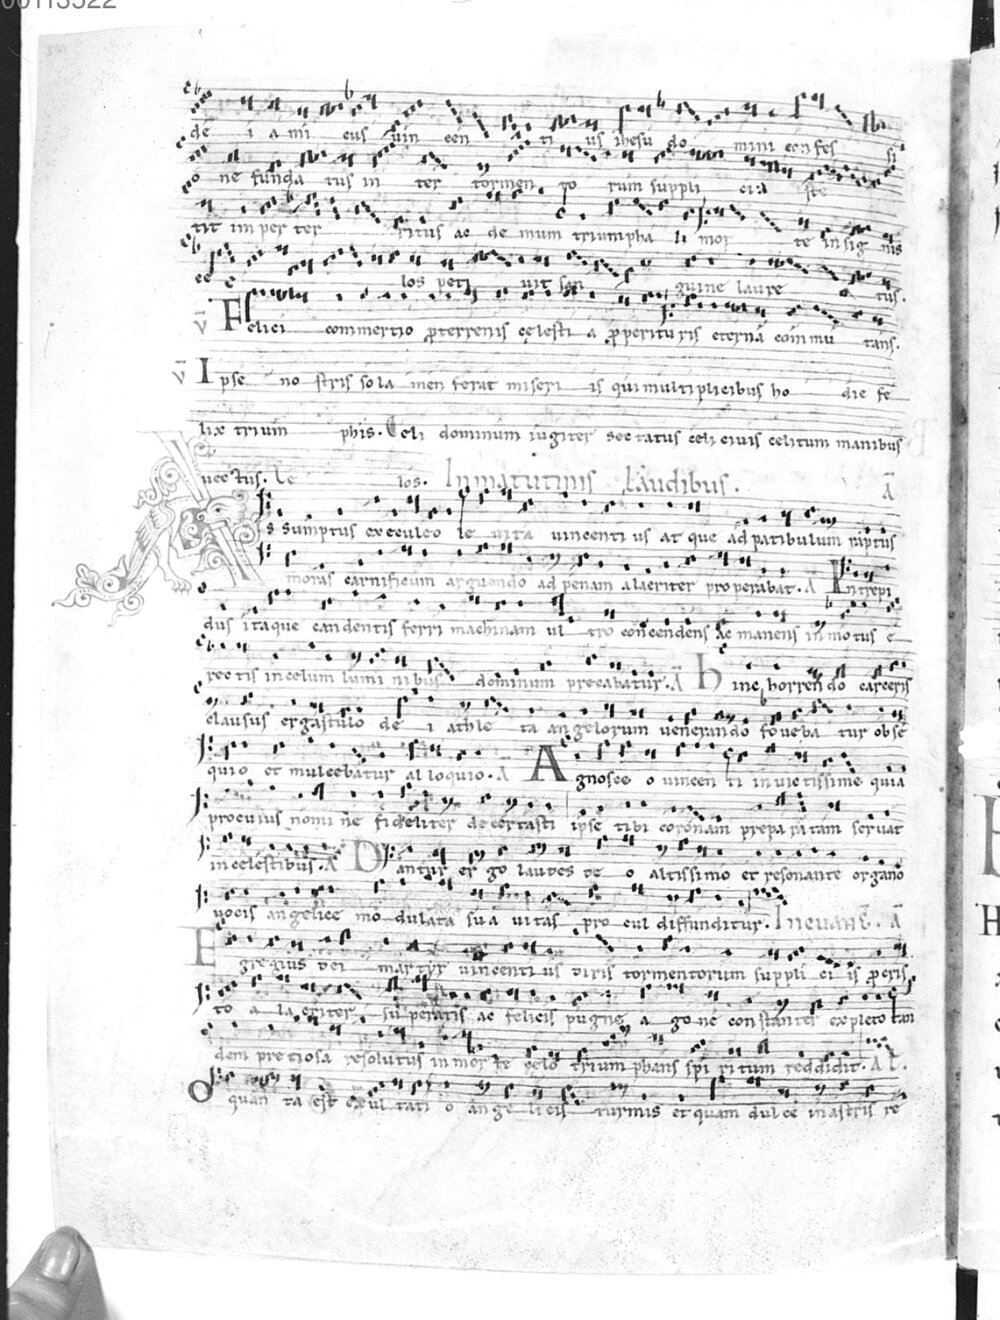 00113522
de i a mi cus vin cen ti us ihesu do mini con fes si
o ne funda tus in ter tormen to rum suppli cia ste
tit imper ter ritus ac de mum triumpha li mor te insig nis
ce los peti vit san guine laure a tus.
v̄ Felici commertio p̱terrenis celesti a p̱perituris eternā commu tans.
v̄ Ipse no stris sola men ferat miseri is qui multiplicibus ho die fe
lix trium phis. Celi dominum iugiter sectatus celi civis celitum manibus
vectus. Ce los. In matutinis Laudibus. Ā
Assumptus ex eculeo le vita vincenti us at que ad patibulum raptus
moras carnificum arguendo ad penam alacriter properabat. Ā Intrepi
dus itaque candentis ferri machinam ul tro concendens ac manens inmotus e
rectis in celum lumi nibus dominum precabatur. Ā Hinc horrendo carceris
clausus ergastulo de i athle ta angelorum venerando foveba tur obse
quio et mulcebatur alloquio. Ā Agnosce o vincen ti invictissime quia
pro cuius nomi ne fideliter decertasti ipse tibi coronam prepa ratam servat
in celestibus. Ā Dantur er go laudes de o altissimo et resonante organo
vocis angelice mo dulata sua vitas pro cul diffunditur. In evanḡ. Ā
Egregius dei martyr vincenti us diris tormentorum suppli ci is p̱peris
to a la criter su peratis ac felicis pugne a go ne constanter expleto tan
dem preciosa resolutus in mor te celo trium phans spi ritum reddidit. Ā
O quan ta est exul tati o an ge li cis turmis et quam dulce in astris re